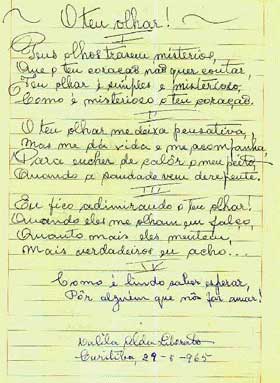 O teu olhar!
I
Teus olhos trazem mistérios,
Que o teu coração não quer contar,
Teu olhar é simples e misterioso,
Como é misterioso o teu coração.
II
O teu olhar me deixa pensativa,
Mas me dá vida e me acompanha
Para encher de calôr o meu peito,
Quando a saudade vem derepente.
III
Eu fico adimirando o teu olhar!
Quando eles me olham em falço,
Quanto mais eles mentem,
Mais verdadeiros eu acho...
Como é lindo saber esperar,
Pôr alguém que nós faz amar!
Dalila
Curitiba, 29-5-965